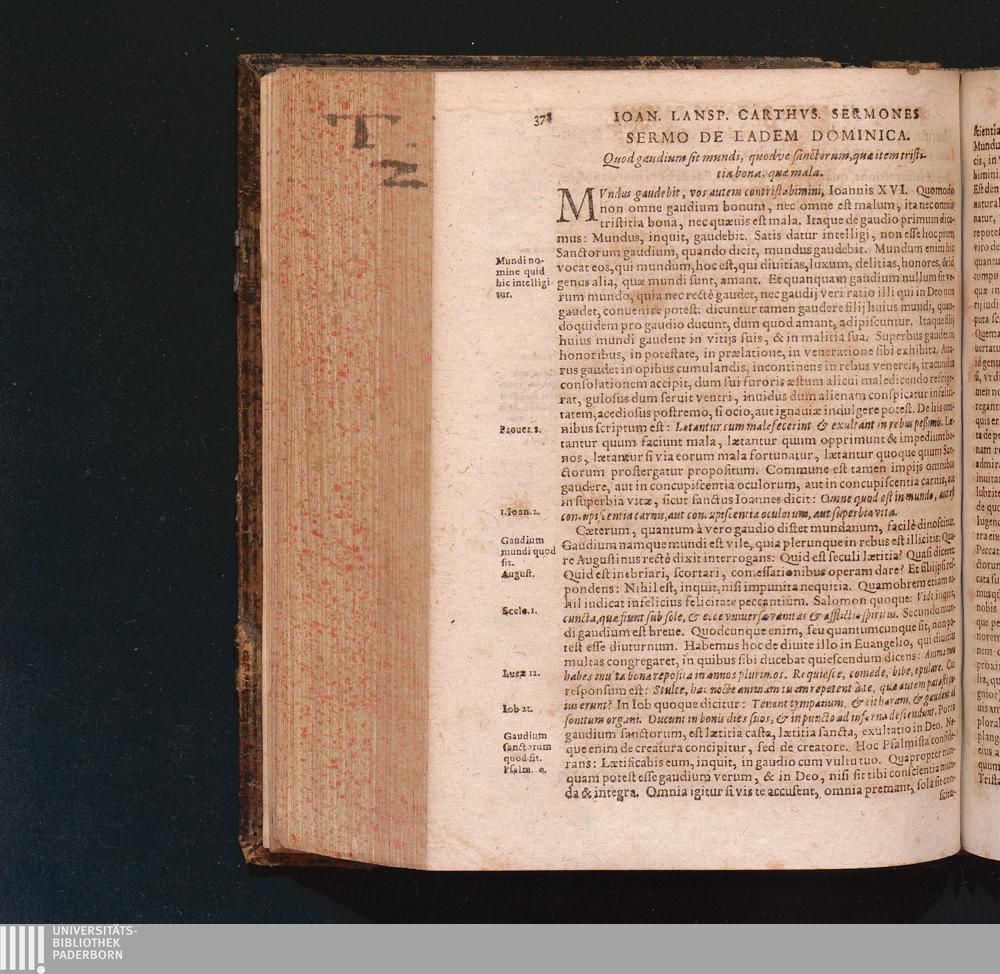 378 IOAN. LANSP. CARTHVS. SERMONES
SERMO DE EADEM DOMINICA.
Quod gaudium sit mundi, quodve sanctorum, quæ item tristi-
tia bona, quæ mala.
MVndus gaudebit, vos autem contristabimini, Ioannis XVI. Quomodo
non omne gaudium bonum, nec omne est malum, ita nec omnis
tristitia bona, nec quæuis est mala. Itaque de gaudio primum dica-
mus: Mundus, inquit, gaudebit. Satis datur intelligi, non esse hoc pium
Sanctorum gaudium, quando dicit, mundus gaudebit. Mundum enim hic
vocat eos, qui mundum, hoc est, qui diuitias, luxum, delitias, honores, & id
genus alia, quæ mundi sunt, amant. Et quanquam gaudium nullum sit ve-
rum mundo, quia nec rectè gaudet, nec gaudij veri ratio illi qui in Deo non
gaudet, conuenire potest: dicuntur tamen gaudere filij huius mundi, quan-
doquidem pro gaudio ducunt, dum quod amant, adipiscuntur. Itaque filij
huius mundi gaudent in vitijs suis, & in malitia sua. Superbus gaudet in
honoribus, in potestate, in prælatione, in veneratione sibi exhibita. Aua-
rus gaudet in opibus cumulandis, incontinens in rebus venereis, iracundus
consolationem accipit, dum sui furoris æstum alicui maledicendo refrige-
rat, gulosus dum seruit ventri, inuidus dum alienam conspicatur infelici-
tatem, acediosus postremo, si ocio, aut ignauiæ indulgere potest. De his om-
nibus scriptum est: Lætantur cum malefecerint & exultant in rebus pessimis. Læ-
tantur quum faciunt mala, lætantur quum opprimunt & impediunt bo-
nos, lætantur si via eorum mala fortunatur, lætantur quoque quum San-
ctorum prostergatur propositum. Commune est tamen impijs omnibus
gaudere, aut in concupiscentia oculorum, aut in concupiscentia carnis, aut
in superbia vitæ, sicut sanctus Ioannes dicit: Omne quod est in mundo, aut est
concupiscentia carnis, aut concupiscentia oculorum, aut superbia vitæ.
Cæterum, quantum à vero gaudio distet mundanum, facilè dinoscitur.
Gaudium namque mundi est vile, quia plerunque in rebus est illicitis: Qua-
re Augustinus rectè dixit interrogans: Quid est seculi lætitia? Quasi diceret:
Quid est inebriari, scortari, comessationibus operam dare? Et sibi ipsi res-
pondens: Nihil est, inquit, nisi impunita nequitia. Quamobrem etiam ni-
hil iudicat infelicius felicitate peccantium. Salomon quoque: Vidi inquit,
cuncta, quæ fiunt sub sole, & ecce vniuersa vanitas & afflictio spiritus. Secundo mun-
di gaudium est breue. Quodcunque enim, seu quantumcunque sit, non po-
test esse diuturnum. Habemus hoc de diuite illo in Euangelio, qui diuitias
multas congregaret, in quibus sibi ducebat quiescendum dicens: Anima mea
habes multa bona reposita in annos plurimos. Requiesce, comede, bibe, epulare. Cui
responsum est: Stulte, hac nocte animam tuam repetent à te, quæ autem parasti cu-
ius erunt? In Iob quoque dicitur: Tenent tympanum, & citharam, & gaudent ad
sonitum organi. Ducunt in bonis dies suos, & in puncto ad inferna descendunt. Porro
gaudium sanctorum, est lætitia casta, lætitia sancta, exultatio in Deo. Ne-
que enim de creatura concipitur, sed de creatore. Hoc Psalmista conside-
rans: Lætificabis eum, inquit, in gaudio cum vultu tuo. Quapropter nun-
quam potest esse gaudium verum, & in Deo, nisi sit tibi conscientia mun-
da & integra. Omnia igitur si vis te accusent, omnia premant, sola sit con-
scien-
Mundi no-
mine quid
hic intelligi-
tur.
Prouer. 2.
1. Ioan. 2.
Gaudium
mundi quod
sit.
August.
Eccle. 1.
Lucæ 12.
Iob 21.
Gaudium
sanctorum
quod sit.
Psalm.
UNIVERSITÄTS-
BIBLIOTHEK
PADERBORN